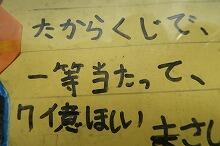 たからくじで、
一等当たって、
7億ほしい
まさし